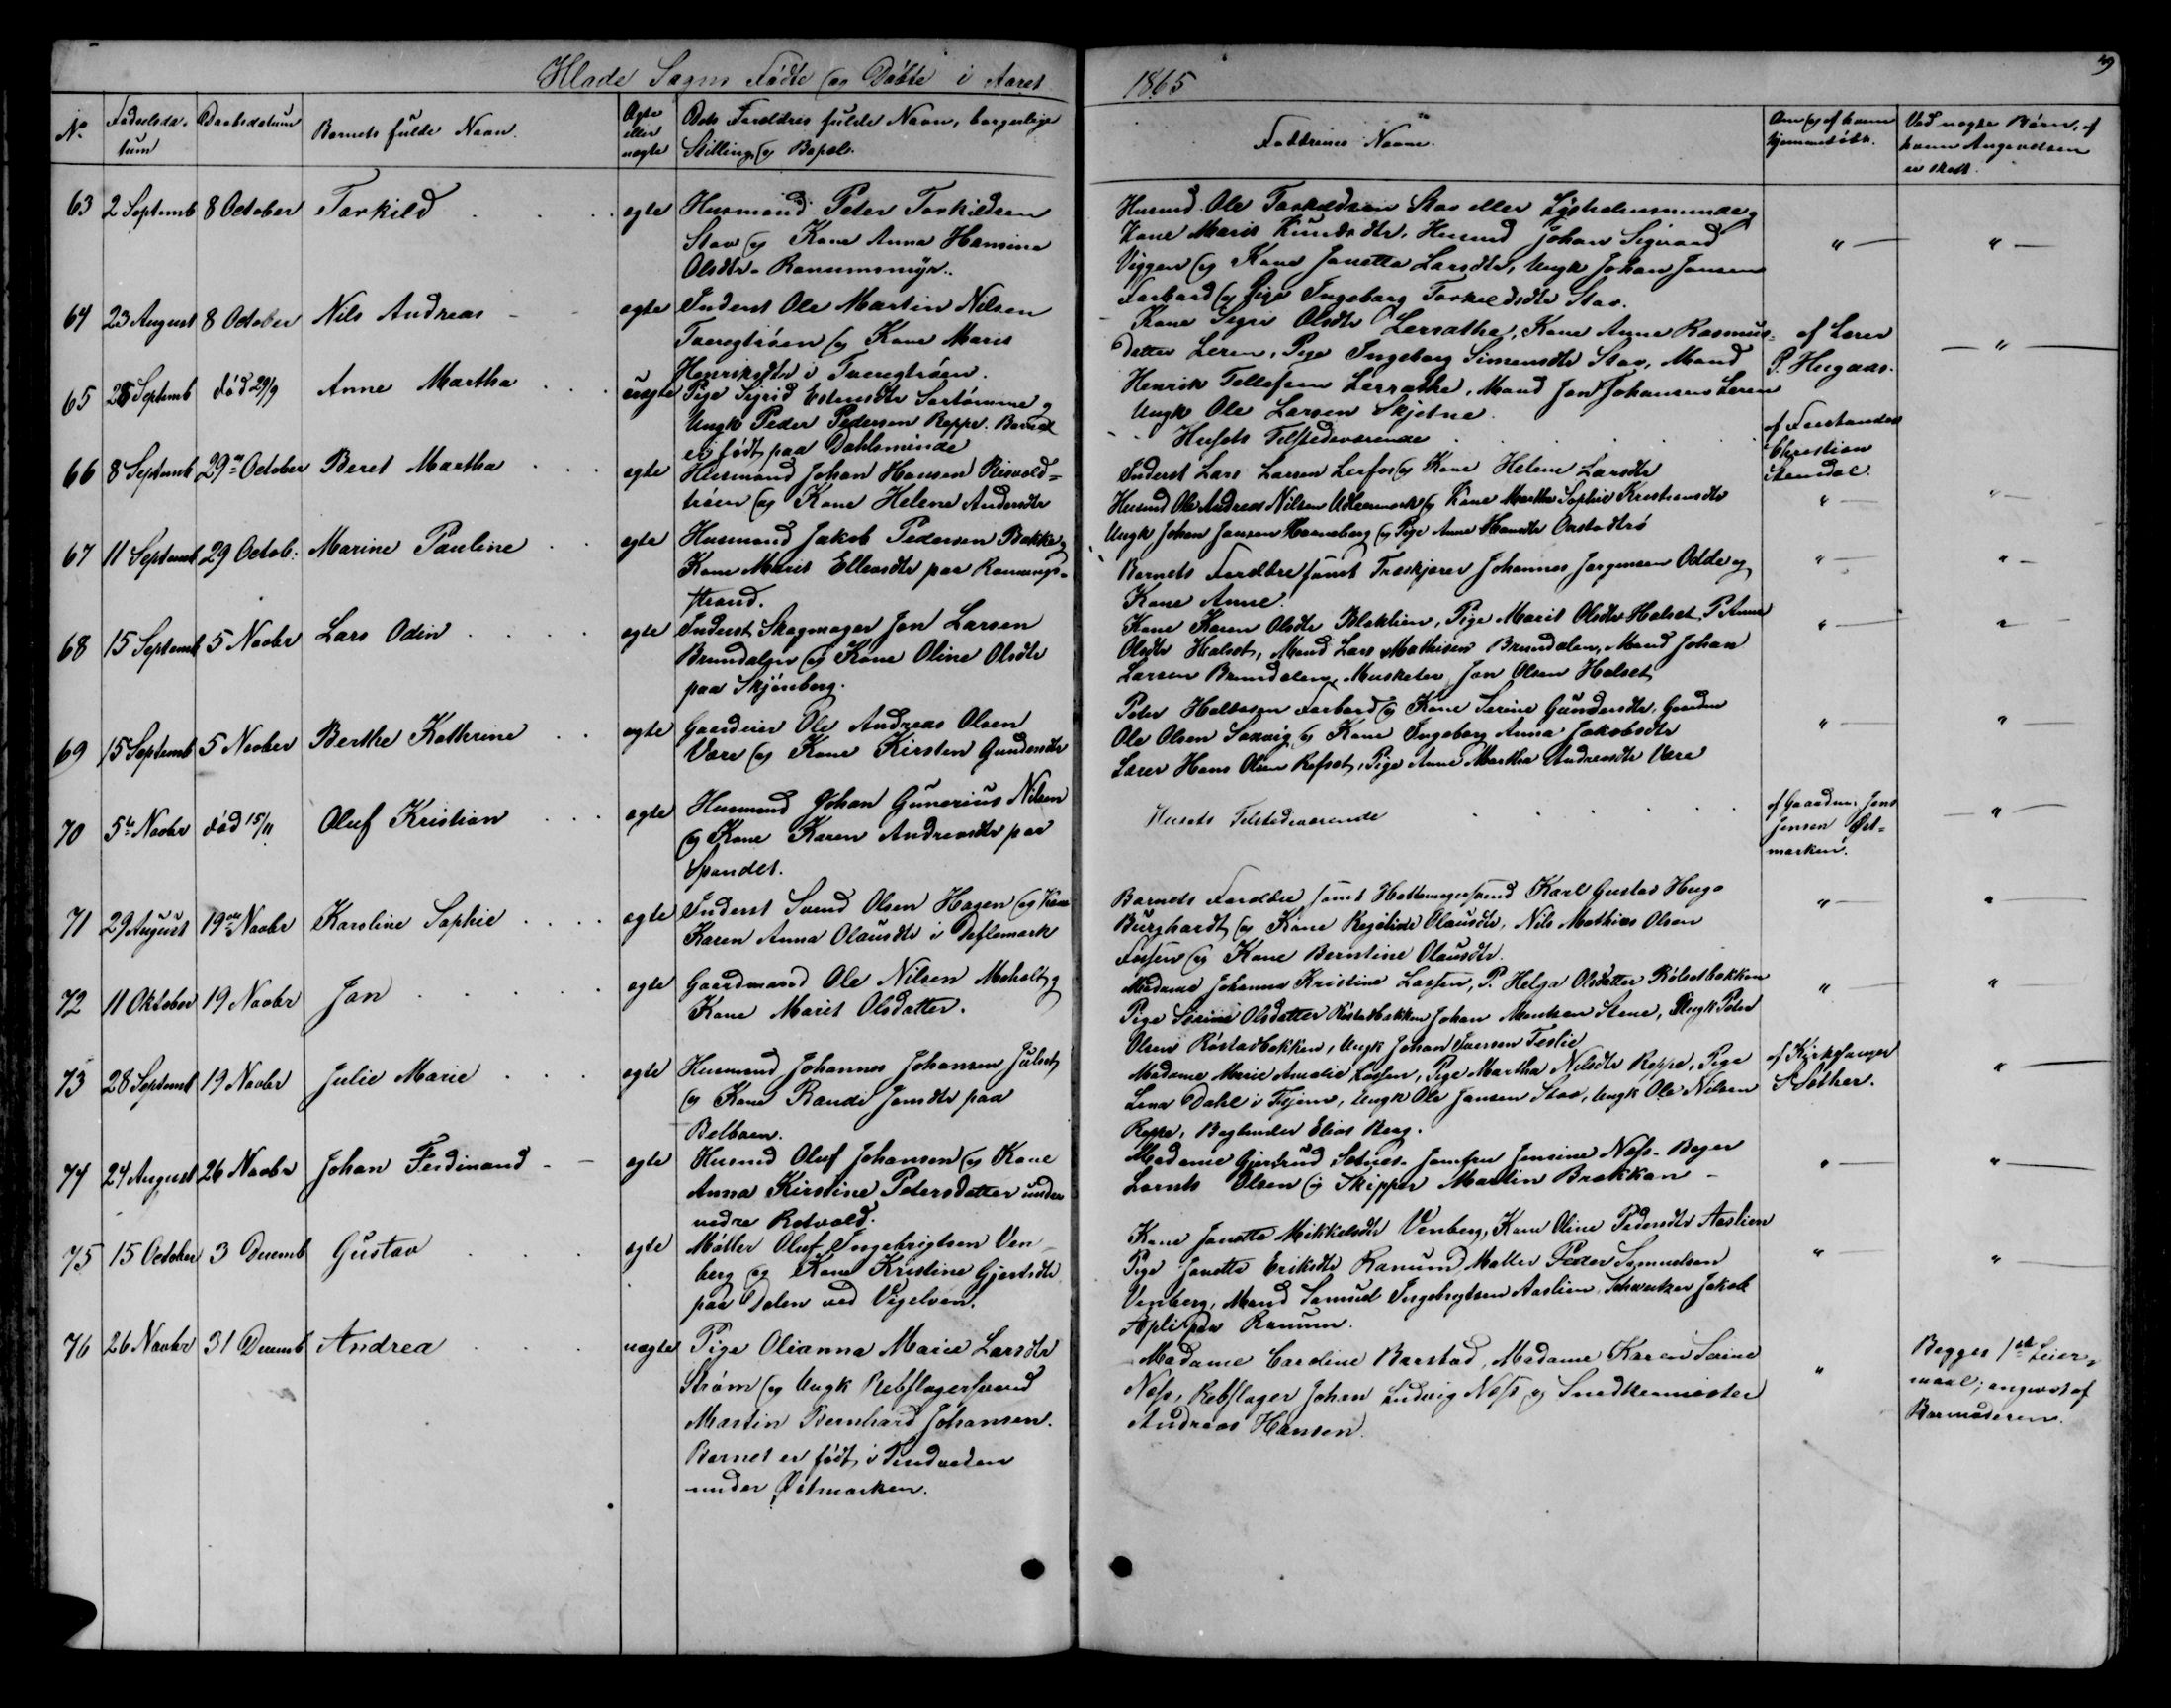 Hlade Sogns Fødte og Døbte i Aaret 1865
9
No
Fødselsda-
tum
Daabsdatum
Barnets fulde Navn.
Ægte
eller
uægte
Dets Forældres fulde Navn, borgerlige
Stilling og Bopæl.
Faddernes Navne.
Om og af hvem
hjemmedøbt.
Ved uægte Børn, af
hvem Angivelsen
er skedt.
63 2 Septemb 8 October Torkild egte Husmand Peter Torkildsen
Stav og Kone Anna Hansina
Olsdtr. Ranumsmyr.
Husmd. Ole Torkildsen Stav eller Lysholmsminde og
Kone Marit Knudsdtr, Husmd Johan Sigvard
Viggen og Kone Janetta Larsdtr, Ungk Johan Jansen
Forbord og Pige Ingeborg Torkildsdtr Stav.
64 23 August 8 October Nils Andreas egte Inderst Ole Martin Nilsen
Tvereggtrøen og Kone Marit
Henriksdtr i Tvereggtrøen.
Kone Segri Olsdtr Leirathe, Kone Anne Rasmus-
datter Leren, Pige Ingeborg Simensdtr Stav, Mand
Henrik Tellefsen Lerrathe, Mand Jon Johansen Leren
Ungk Ole Larsen Skjetne.
af Lærer
P. Hugaas.
65 28 Septemb død 29/9 Anne Martha uegte Pige Sigrid Estensdtr Sertømme og
Ungk Peder Pedersen Reppe. Barnet
er født paa Dahlsminde
Husets Tilstedeværende
af Forstander
Christian
Stendal.
66 8 Septemb 29de October Beret Martha egte Husmand Johan Hansen Risvold-
trøen og Kone Helene Andersdtr
Inderst Lars Larsen Lerfos og Kone Helene Larsdtr
Husmd Ole Andreas Nilsen Utleermark og Kone Martha Sophie Kristiansdtr
Ungk Johan Jansen Hanneborg og Pige Anne Hansdtr Onstadtrø
67 11 Septemb 29 Octob: Marine Pauline egte Husmand Jakob Pedersen Bakke og
Kone Marit Ellevsdtr paa Ranungs-
strand.
Barnets Forældre samt Træskjærer Johannes Jørgensen Odde og
Kone Anne.
68 15 Septemb 5 Novbr Lars Odin egte Inderst Skogmager Jon Larsen
Brundalen og Kone Oline Olsdtr
paa Skjønberg.
Kone Karen Olsdtr Blaklien, Pige Marit Olsdtr Halset, P. Anne
Olsdtr Halset, Mand Lars Mathisen Brundalen, Mand Johan
Larsen Brundalen, Musketer Jon Olsen Halset
69 15 Septemb 5 Novber Berthe Kathrine egte Gaardeier Ole Andreas Olsen
Være og Kone Kirsten Gundersdtr
Peter Haltesen Forbord og Kone Serine Gundersdtr, Gaardm
Ole Olsen Solvig og Kone Ingeborg Anna Jakobsdtr
Lærer Hans Olsen Refset, Pige Anne Martha Andreasdtr Være
70 5te Novbr død 15/11 Oluf Kristian egte Husmand Johan Gunerius Nilsen
og Kone Karen Andreasdtr paa
Spandet.
Husets Tilstedeværende
af Gaardm. Jens
Jensen Øst-
marken.
71 29 August 19de Novbr Karoline Sophie egte Inderst Svend Olsen Hagen og Kone
Karen Anna Olausdtr i Deflemark
Barnets Forældre samt Hattemagersvend Karl Gustav Hugo
Burghardt og Kone Regeline Olausdtr, Nils Mathias Olsen
Fossen og Kone Berntine Olausdtr.
72 11 Oktober 19 Novbr Jon egte Gaardmand Ole Nilsen Moholt og
Kone Marit Olsdatter.
Madame Johanna Kristine Lassen, P. Helga Olsdatter Røstadbakken
Pige Serine Olsdatter Røstadbakken Johan Mentzen Stene, Ungk Peter
Olsen Røstadbakken, Ungk Johan Iversen Teslie
73 28 Septemb 19 Novbr Julie Marie egte Husmand Johannes Johansen Julset
og Kone Randi Jonsdtr paa
Belbuen.
Madame Marie Amalie Lassen, Pige Martha Nilsdtr Reppe, Pige
Lena Dahl i Thjem, Ungk Ole Jansen Stav, Ungk Ole Nilsen
Reppe, Bogbinder Elias Berg.
af Kirkesanger
S. Sæther.
74 24 August 26 Novbr Johan Ferdinand egte Husmd Oluf Johansen og Kone
Anna Kirstine Petersdatter under
nedre Rotvold.
Madame Gjertrud Setnes. Jomfru Jensine Næss. Bager
Lornts Olsen og Skipper Martin Brækkan
75 15 October 3 Decemb Gustav egte Møller Oluf Ingebrigtsen Ven-
berg og Kone Kristine Gjertsdtr
paa Dalen ved Vigelven.
Kone Janetta Mikkelsdtr Venberg, Kone Oline Pedersdtr Aaslien
Pige Janetta Eriksdtr Ranum, Møller Peder Samuelsen
Venberg, Mand Samuel Ingebrigtsen Aaslien, Schweitzer Jakob
Apli paa Ranum.
76 26 Novbr 31 Decemb Andrea uægte Pige Olianna Marie Larsdtr
Strøm og Ungk Rebslagersvend
Martin Bernhard Johansen.
Barnet er født i Tindveden
under Østmarken.
Madame Caroline Barstad, Madame Karen Serine
Næss, Rebslager Johan Ludvig Næss og Snedkermester
Andreas Hansen.
Begges 1ste Leier-
maal; angivet af
Barnefaderen.